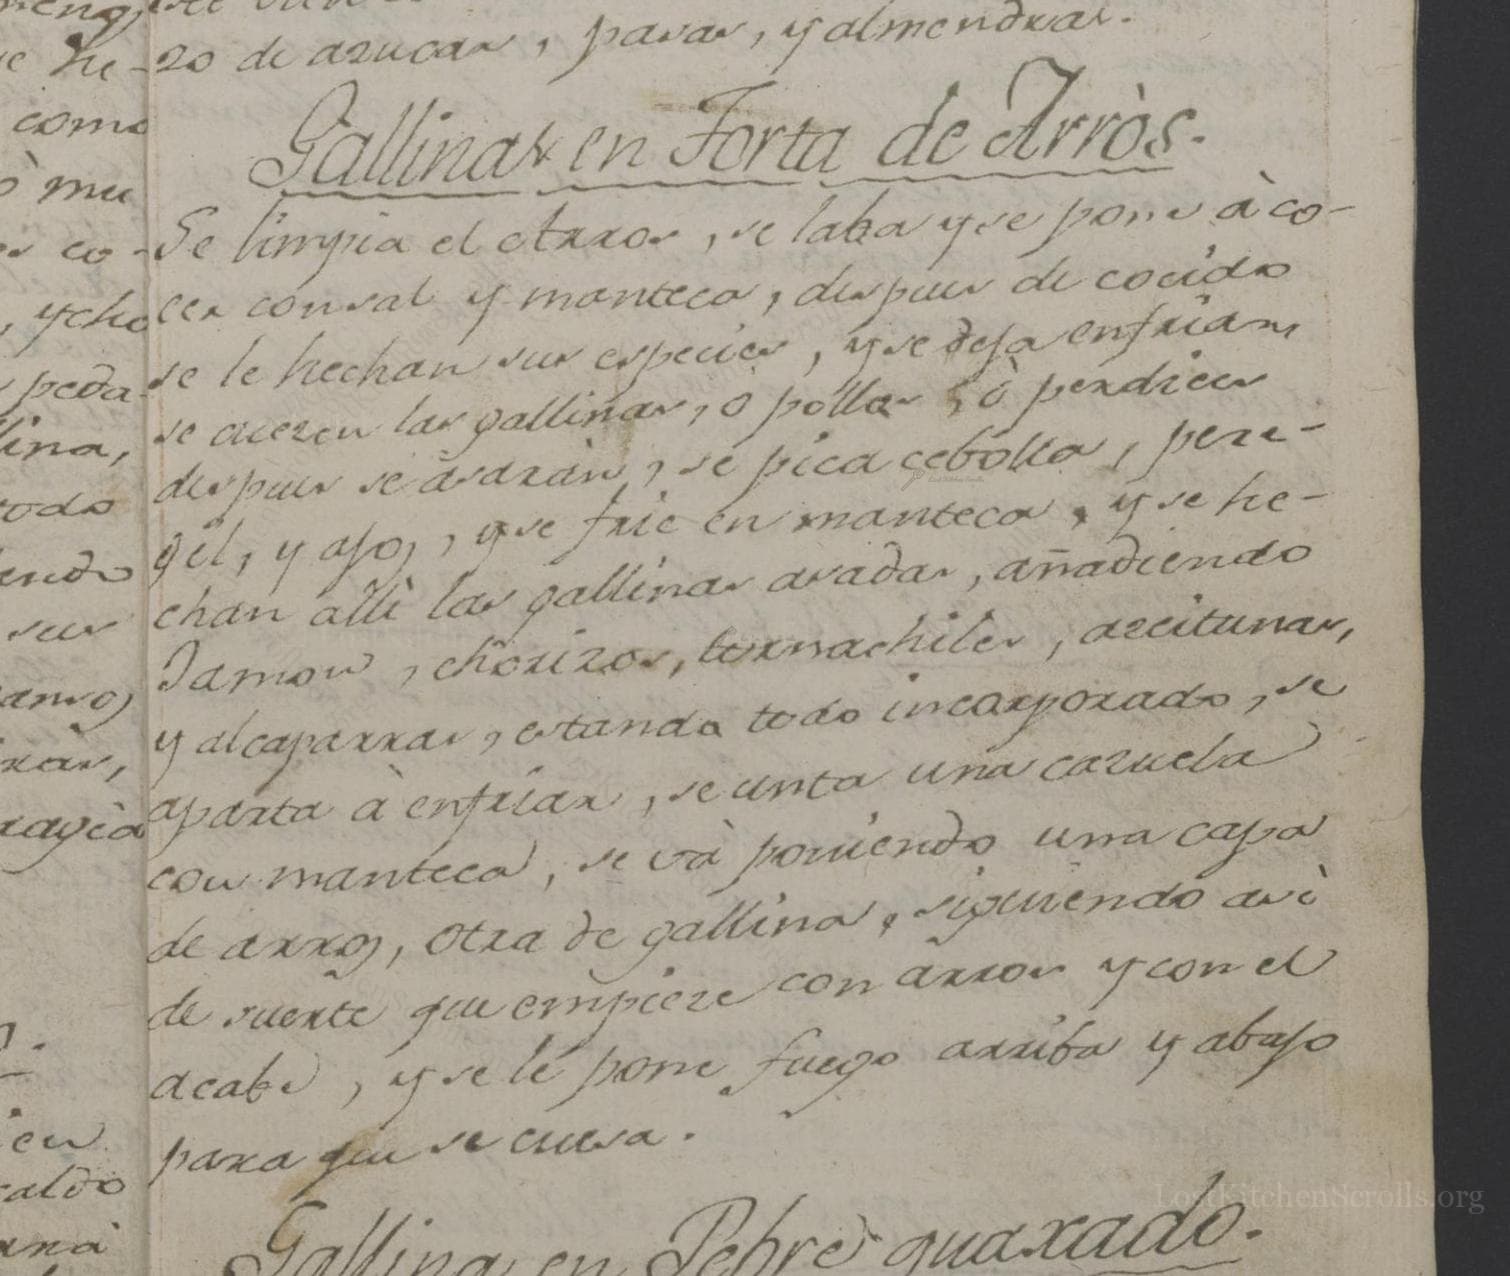 zo de azucar, pasas, y almendras.
Gallinas en Torta de Arròs.
Se limpia el Arros, se laba y se pone à co-
cer con sal y manteca, despues de cocido
se le hechan sus especies, y se deja enfriar,
se cuezen las gallinas, ó pollas, ò perdices
despues se asaràn, se pica cebolla, pere-
gil, y ajo, y se frie en manteca, y se he-
chan alli las gallinas asadas, añadiendo
Jamon, chorizos, tornachiles, azeitunas,
y alcaparras, estando todo incorporado, se
aparta à enfriar, se unta una cazuela
con manteca, se và poniendo una capa
de arroz, otra de gallina, siguiendo asì
de suerte que empieze con arros y con el
acabe, y se le pone fuego arriba y abajo
para que se cuesa.
Gallina en Pebre quaxado.
como
ò mu
es co-
, y cho
peda-
lina,
todo
endo
sus
caldo
LostKitchenScrolls.org